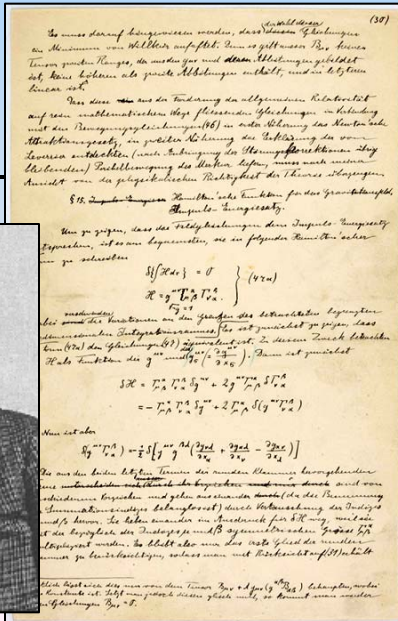 (30)
Es muss darauf hingewiesen werden, dass der Wahl dieser Gleichungen
ein Minimum von Willkür anhaftet. Denn es gibt ausser Bμν keinen
Tensor zweiten Ranges, der aus den gμν und deren Ableitungen gebildet
ist, keine höheren als zweite Ableitungen enthält, und in letzteren
linear ist.
Dass diese aus der Forderung der allgemeinen Relativität
auf rein mathematischem Wege fliessenden Gleichungen in Verbindung
mit den Bewegungsgleichungen (46) in erster Näherung das Newton'sche
Attraktionsgesetz, in zweiter Näherung die Erklärung der von
Leverrier entdeckten (nach Anbringung der Störungskorrektionen übrig
bleibenden) Perihelbewegung des Merkur liefern, muss nach meiner
Ansicht von der physikalischen Richtigkeit der Theorie überzeugen.
§ 15. Hamilton'sche Funktion für das Gravitationsfeld,
Impuls-Energiesatz.
Um zu zeigen, dass die Feldgleichungen dem Impuls-Energiesatz
entsprechen, ist es am bequemsten, sie in folgender Hamilton'scher
zu schreiben
δ{∫H dτ} = 0
H = g^μν Γ^α_μβ Γ^β_να } (47a)
√-g = 1
die Variationen an den Grenzen des betrachteten begrenzten
Integrationsraumes
Es ist zunächst zu zeigen, dass
(47a) den Gleichungen (47) äquivalent ist. Zu diesem Zweck betrachten
H als Funktion der g^μν und g^μν_σ (= ∂g^μν/∂x_σ). Dann ist zunächst
δH = Γ^α_μβ Γ^β_να δg^μν + 2 g^μν Γ^α_μβ δΓ^β_να
= - Γ^α_μβ Γ^β_να δg^μν + 2 Γ^α_μβ δ(g^μν Γ^β_να)
Nun ist aber
δ(g^μν Γ^β_να) = -½ δ[g^μν g^βλ (∂g_νλ/∂x_α + ∂g_αλ/∂x_ν - ∂g_αν/∂x_λ)]
Die aus den beiden letzten Termen der runden Klammer hervorgehenden
sind von
Vorzeichen und gehen auseinander (da die Benennung
Summationsindizes belanglos ist) durch Vertauschung der Indizes
und β hervor. Sie heben einander im Ausdruck für δH weg, weil sie
mit der bezüglich der Indizes μ und β symmetrischen Grösse Γ^α_μβ
multipliziert werden. Es bleibt also nur das erste Glied der runden
zu berücksichtigen, sodass man mit Rücksicht auf (31) erhält
lässt sich dies nur von dem Tensor Bμν + λ gμν (g^αβ Bαβ) behaupten, wobei
Konstante ist. Setzt man jedoch diesen gleich null, so kommt man wieder
Gleichungen Bμν = 0.